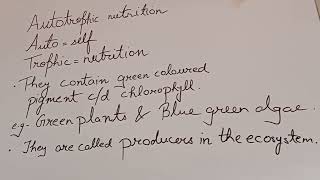 Autotrophic nutrition
Auto = self
Trophic = nutrition
• They contain green coloured
pigment c/d chlorophyll.
e.g- Green plants & Blue green algae.
• They are called producers in the ecosystem.